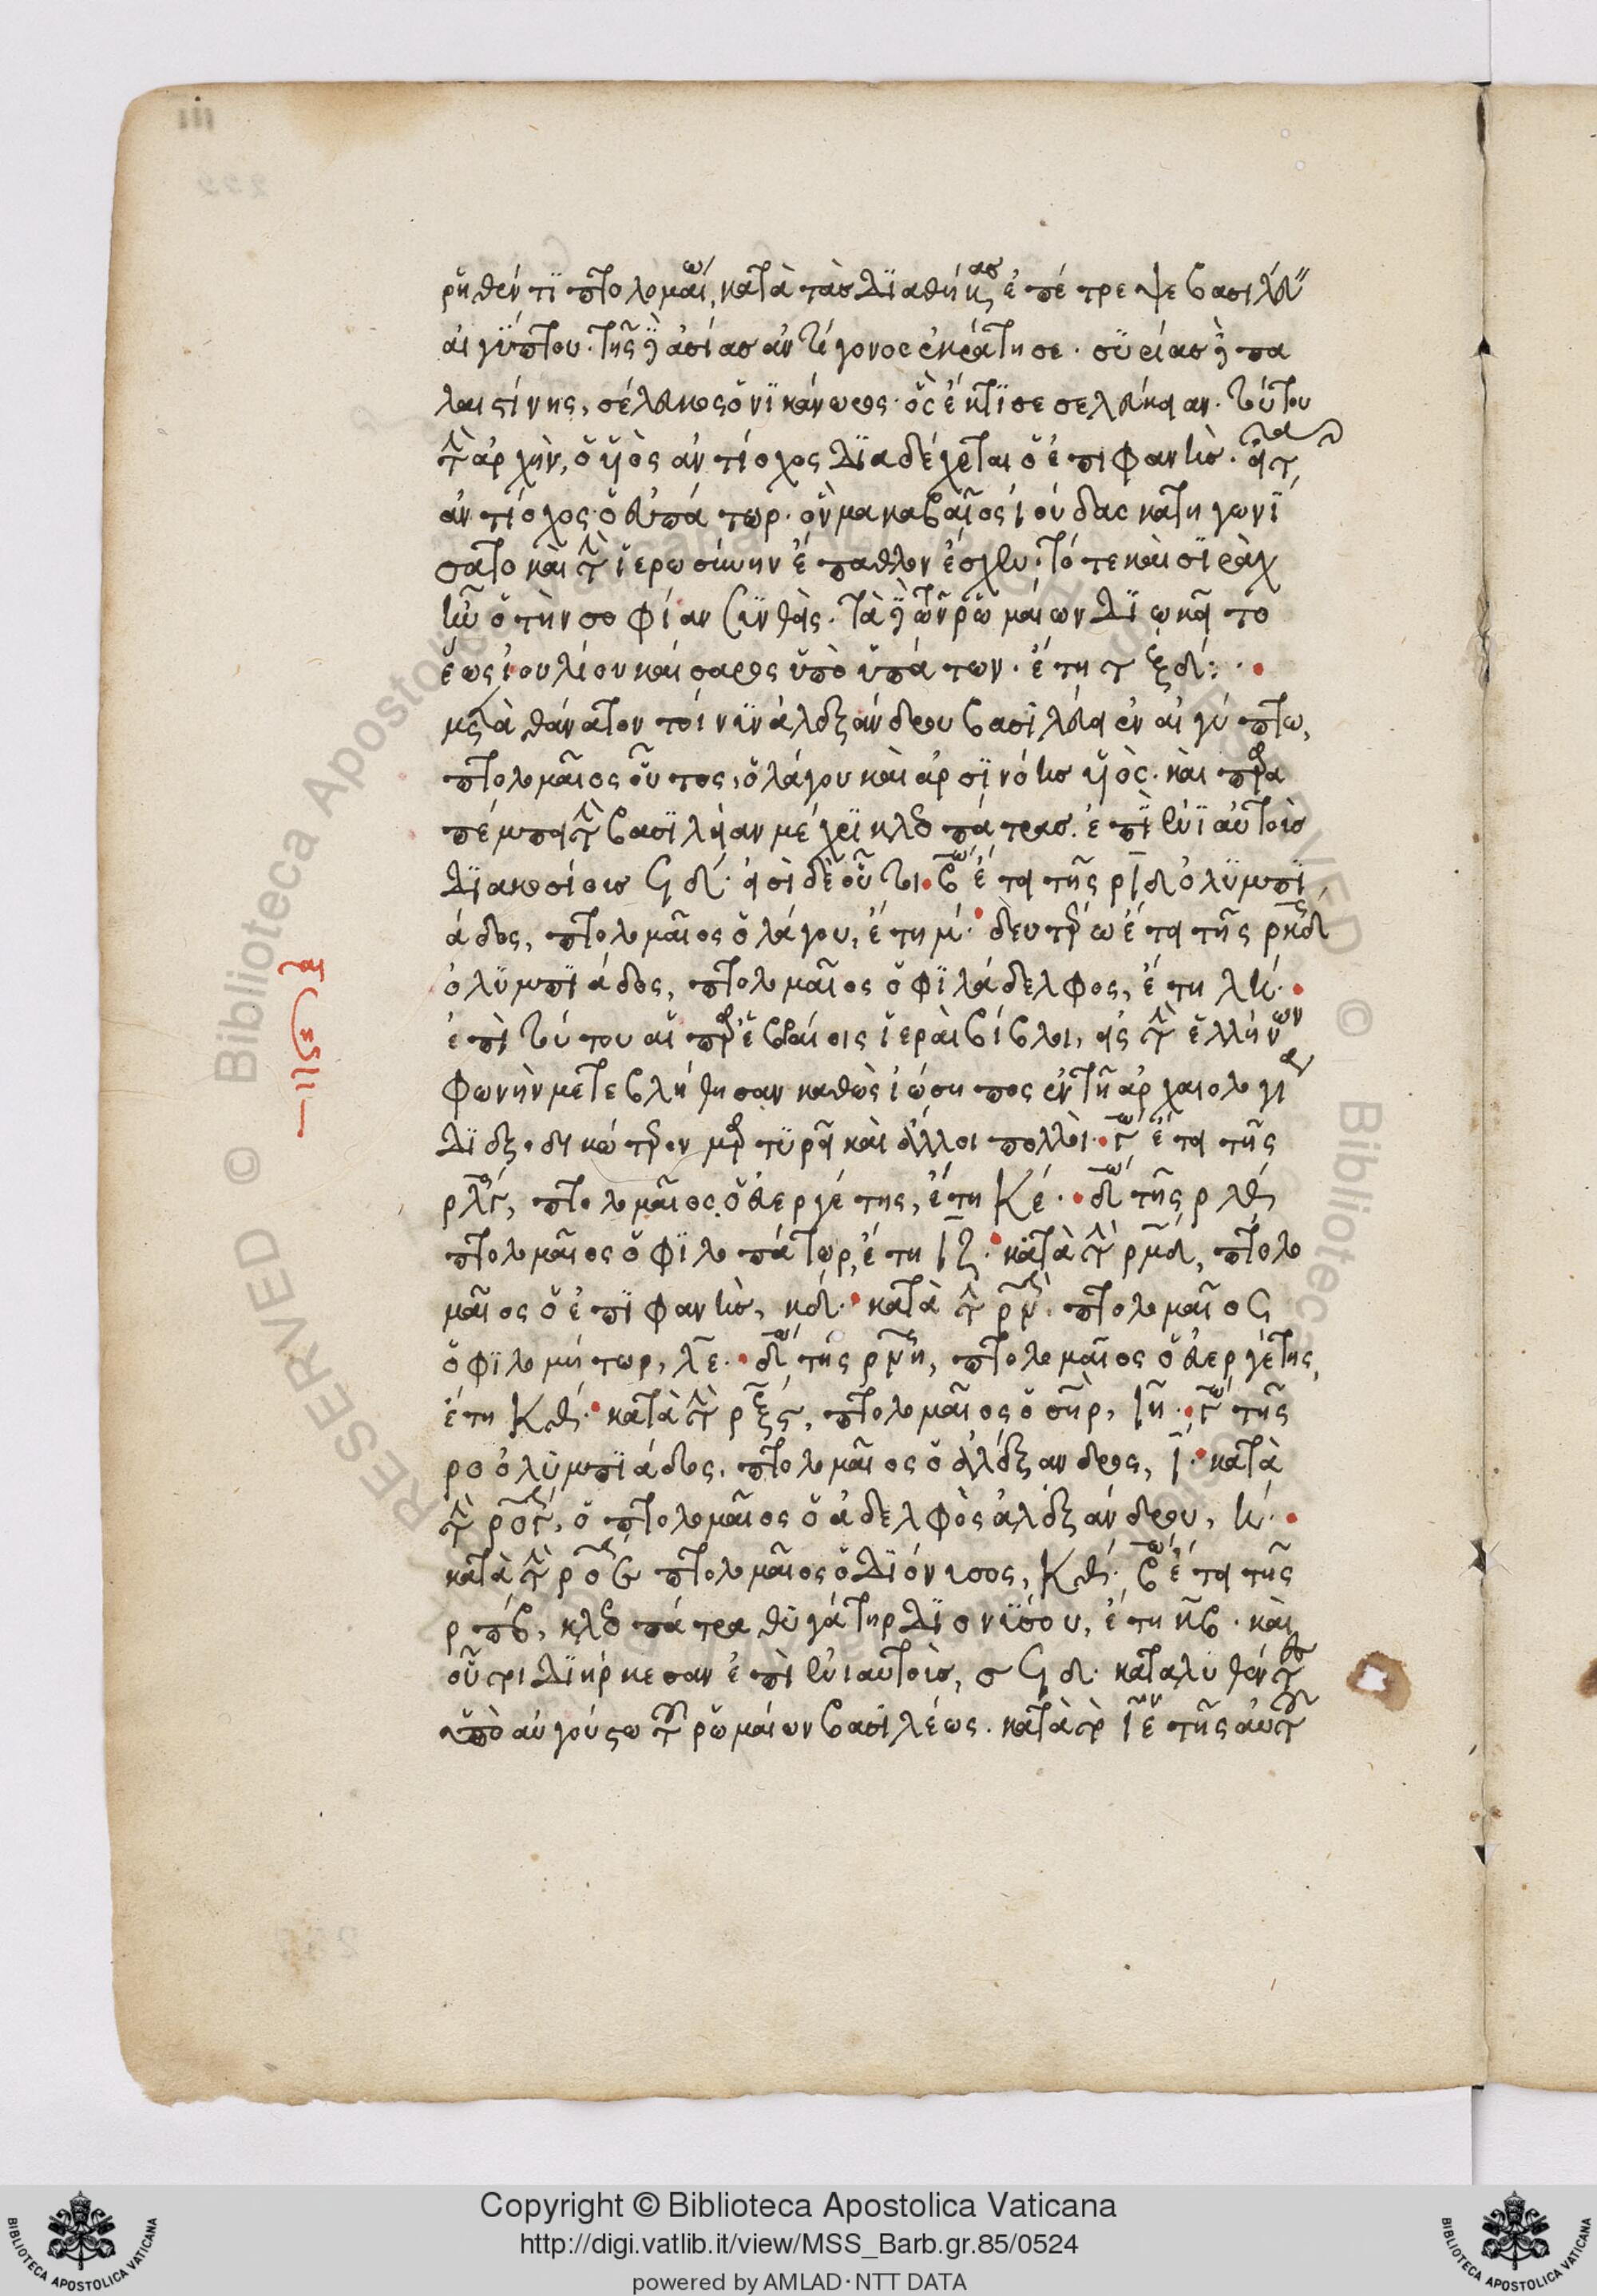 ρηθέντι πτολομαίω, κατὰ τὰς διαθήκας ἐπέτρεψε βασιλεύειν
αἰγύπτου. τῆς δὲ ἀσίας ἀντίγονος ἐκράτησε. συρίας δὲ πα
λαιστίνης, σέλευκος ὁ νικάνωρος. ὃς ἔκτισε σελεύκειαν. τούτου
τὴν ἀρχὴν, ὁ υἱὸς ἀντίοχος διαδέχεται ὁ ἐπιφανής. εἶτα
ἀντίοχος ὁ εὐπάτωρ. ὃν μακαβαῖος ἰούδας κατηγωνί
σατο καὶ τὴν ἱερωσύνην ἔπαθλον ἔσχεν. τότε καὶ σιρὰχ
ἦν ὁ τὴν σοφίαν συνθείς. τὰ δὲ τῶν ῥωμαίων διώκει το
ἕως ἰουλίου καίσαρος ὑπὸ ὑπάτων. ἔτη τξδ:
μετὰ θάνατον τοίνυν ἀλεξάνδρου βασιλεύει ἐν αἰγύπτω,
πτολομαῖος οὗτος, ὁ λάγου καὶ ἀρσινόης υἱός. καὶ παρα
πέμπει τὴν βασιλείαν μέχρι κλεοπάτρας. ἐπὶ ἐνιαυτοῖς
διακοσίοις ϟδ. εἰσὶ δὲ οὗτοι. β ἔτει τῆς ριδ ὀλυμπι
άδος, πτολομαῖος ὁ λάγου, ἔτη μ. δευτέρω ἔτει τῆς ρκδ
ὀλυμπιάδος, πτολομαῖος ὁ φιλάδελφος, ἔτη λη.
ἐπὶ τούτου αἱ παρ' ἑβραίοις ἱεραὶ βίβλοι, εἰς τὴν ἑλλήνων
φωνὴν μετεβλήθησαν καθὼς ἰώσηπος ἐν τῆ ἀρχαιολογία
διεξοδικώτερον μαρτυρεῖ καὶ ἄλλοι πολλοί. γ ἔτει τῆς
ρλγ, πτολομαῖος ὁ εὐεργέτης, ἔτη κε. δ τῆς ρλθ
πτολομαῖος ὁ φιλοπάτωρ, ἔτη ιζ. κατὰ τὴν ρμδ, πτολο
μαῖος ὁ ἐπιφανής, κδ. κατὰ τὴν ρν. πτολομαῖος
ὁ φιλομήτωρ, λε. δ τῆς ρνη, πτολομαῖος ὁ εὐεργέτης,
ἔτη κθ. κατὰ τὴν ρξς, πτολομαῖος ὁ σωτήρ, ιη. γ τῆς
ρο ὀλυμπιάδος. πτολομαῖος ὁ ἀλέξανδρος, ι. κατὰ
τὴν ρογ, ὁ πτολομαῖος ὁ ἀδελφὸς ἀλεξάνδρου, η.
κατὰ τὴν ροϛ πτολομαῖος ὁ διόνυσος, κθ. β ἔτει τῆς
ρπβ, κλεοπάτρα θυγάτηρ διονύσου, ἔτη κβ. καὶ
οὗτοι διήρκεσαν ἐπὶ ἐνιαυτοῖς, σϟδ. καταλυθέντες
ὑπὸ αὐγούστω τοῦ ῥωμαίων βασιλέως. κατὰ τὸ ιε τῆς αὐτοῦ
Copyright © Biblioteca Apostolica Vaticana
http://digi.vatlib.it/view/MSS_Barb.gr.85/0524
powered by AMLAD · NTT DATA